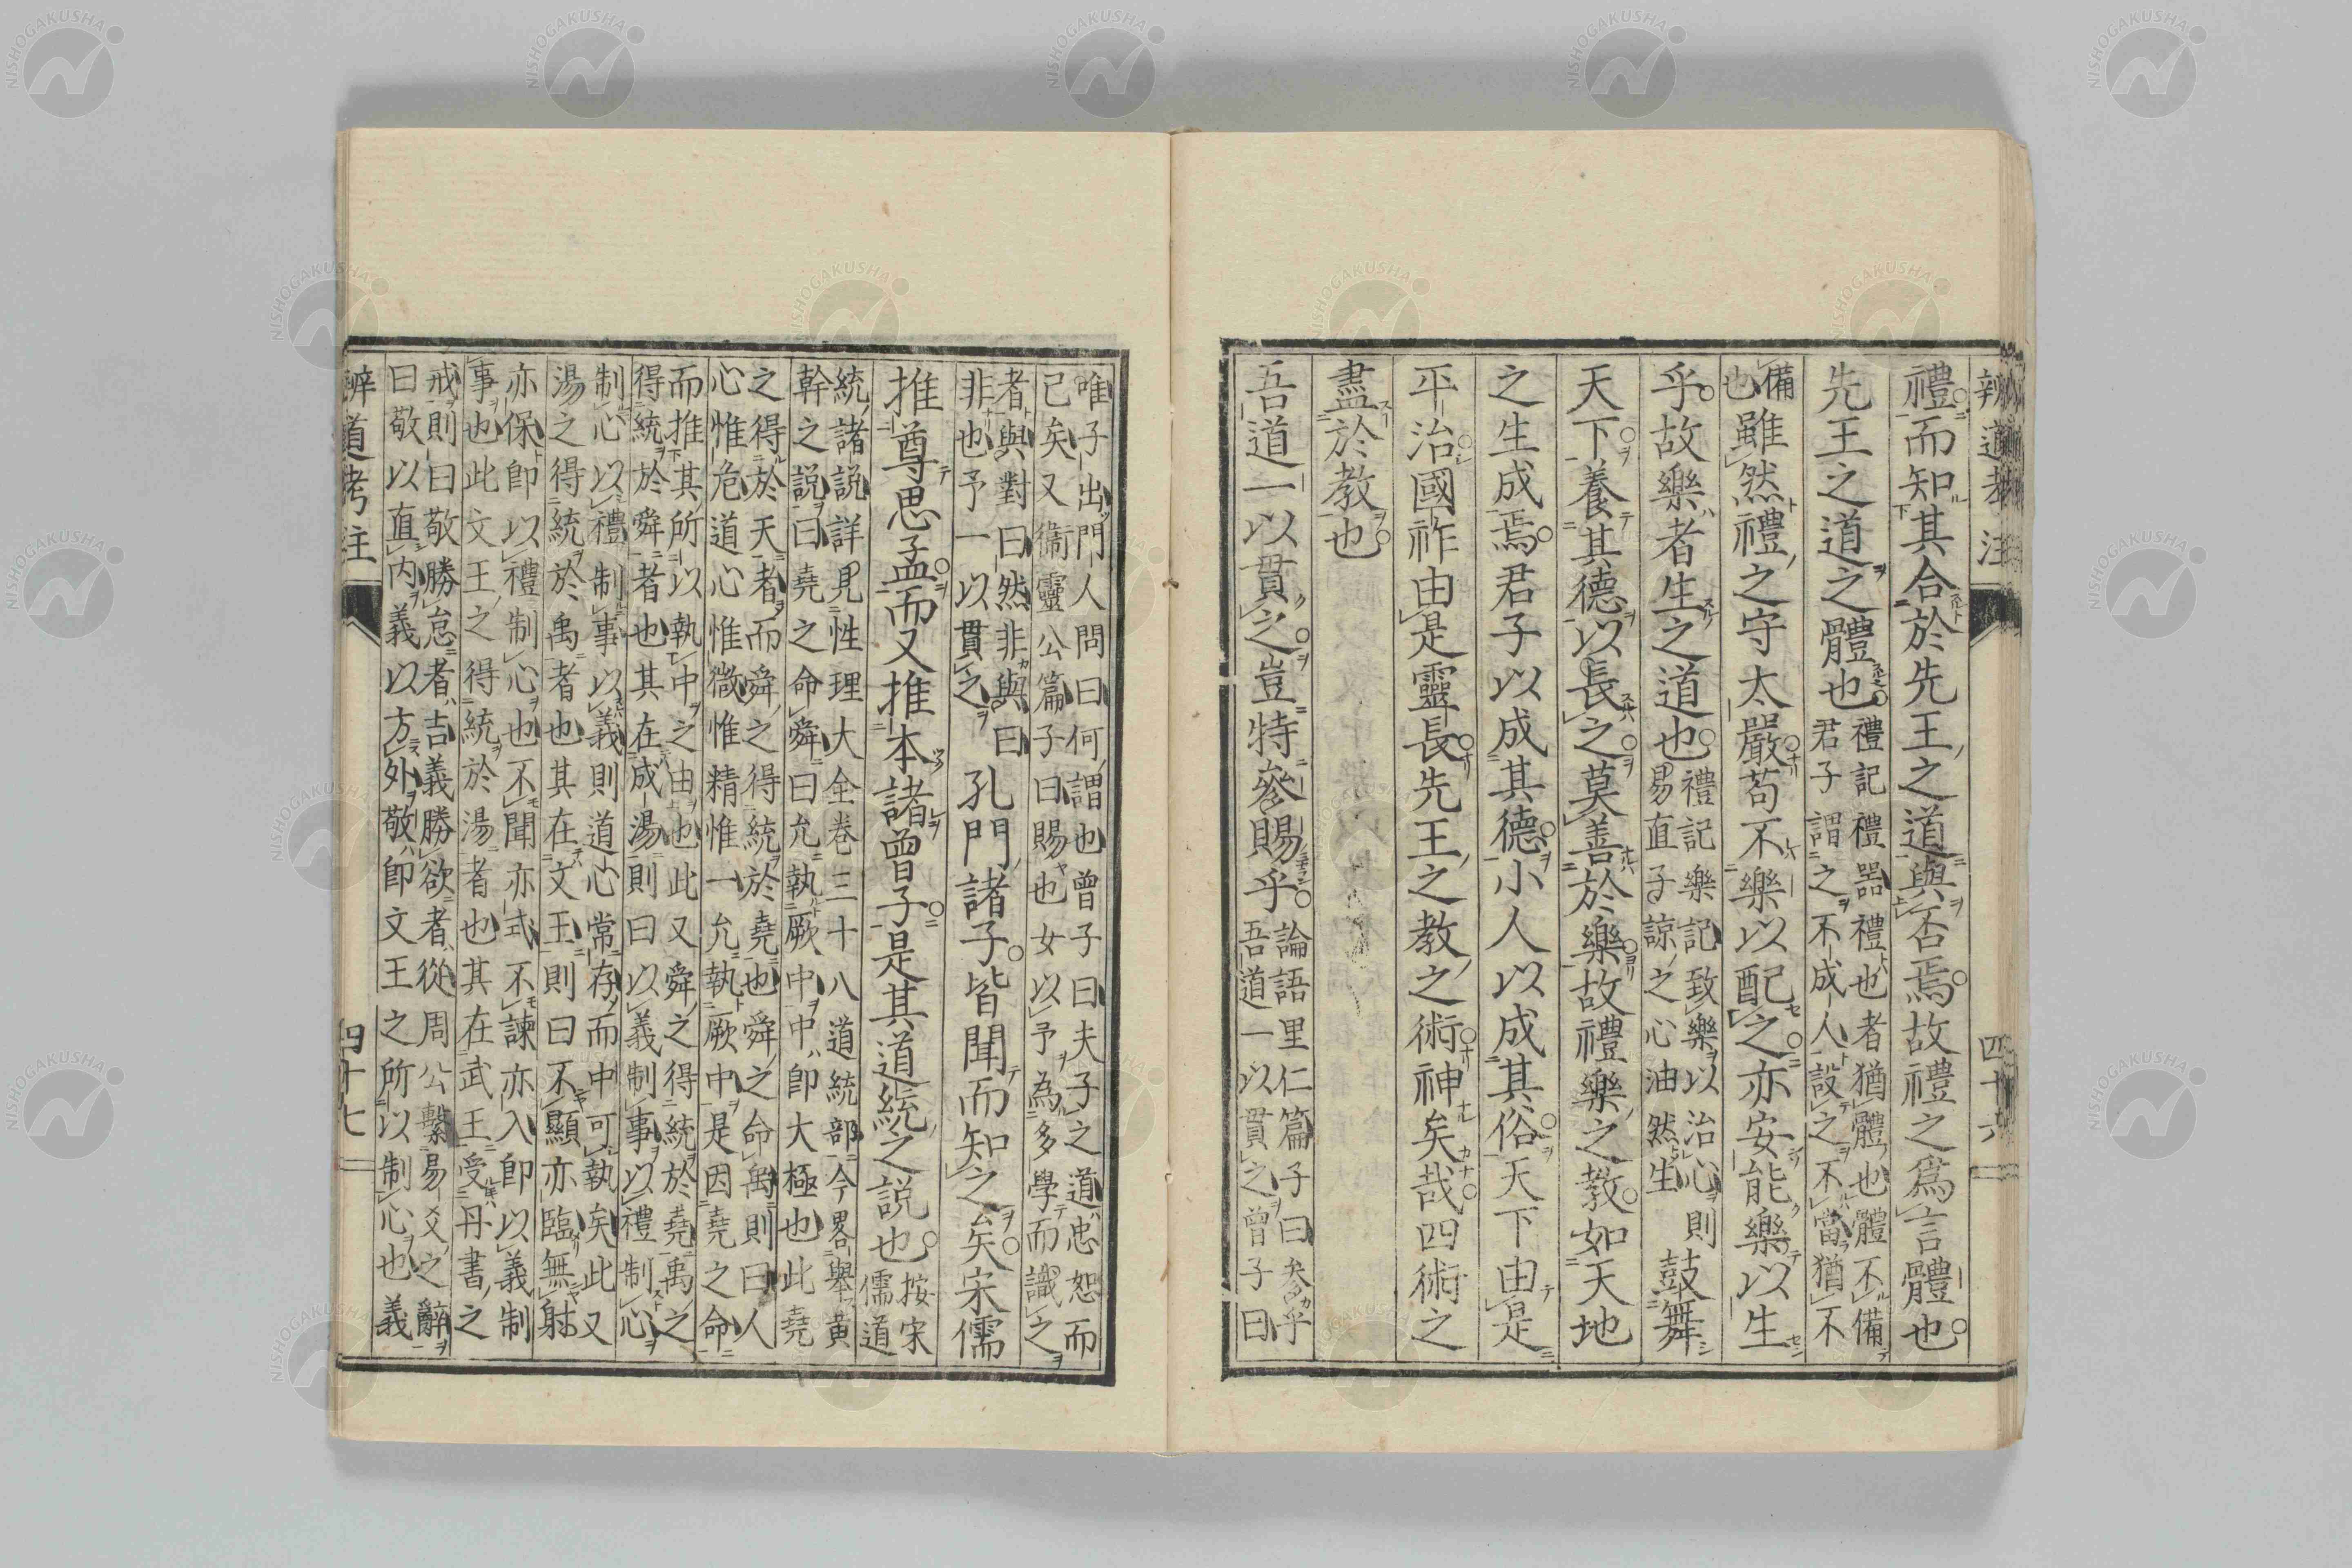 辨道考注 四十六
禮而知其合於先王之道與否焉故禮之爲言體也
先王之道之體也禮記禮器禮也者猶體也體不備君子謂之不成人設之不當猶不
備也雖然禮之守太嚴苟不樂以配之亦安能樂以生
乎故樂者生之道也禮記樂記致樂以治心則易直子諒之心油然生鼓舞
天下養其德以長之莫善於樂故禮樂之教如天地
之生成焉君子以成其德小人以成其俗天下由是
平治國祚由是靈長先王之教之術神矣哉四術之
盡於教也
吾道一以貫之豈特參賜乎論語里仁篇子曰參乎吾道一以貫之曾子曰
唯子出門人問曰何謂也曾子曰夫子之道忠恕而
已矣又衞靈公篇子曰賜也女以予為多學而識之
者與對曰然非與曰非也予一以貫之孔門諸子皆聞而知之矣宋儒
推尊思孟而又推本諸曾子是其道統之説也按宋儒道
統諸説詳見性理大全卷三十八道統部今畧舉黄
幹之説曰堯之命舜曰允執厥中中即大極也此堯
之得於天者而舜之得統於堯也舜之命禹則曰人
心惟危道心惟微惟精惟一允執厥中是因堯之命
而推其所以執中之由也此又舜之得統於堯禹之
得統於舜者也其在成湯則曰以義制事以禮制心
制心以禮制事以義則道心常存而中可執矣此又
湯之得統於禹者也其在文王則曰不顯亦臨無射
亦保即以禮制心也不聞亦式不諫亦入即以義制
事也此文王之得統於湯者也其在武王受丹書之
戒則曰敬勝怠者吉義勝欲者從周公繫易爻之辭
曰敬以直内義以方外敬即文王之所以制心也義
辨道考注 四十七
NISHOGAKUSHA